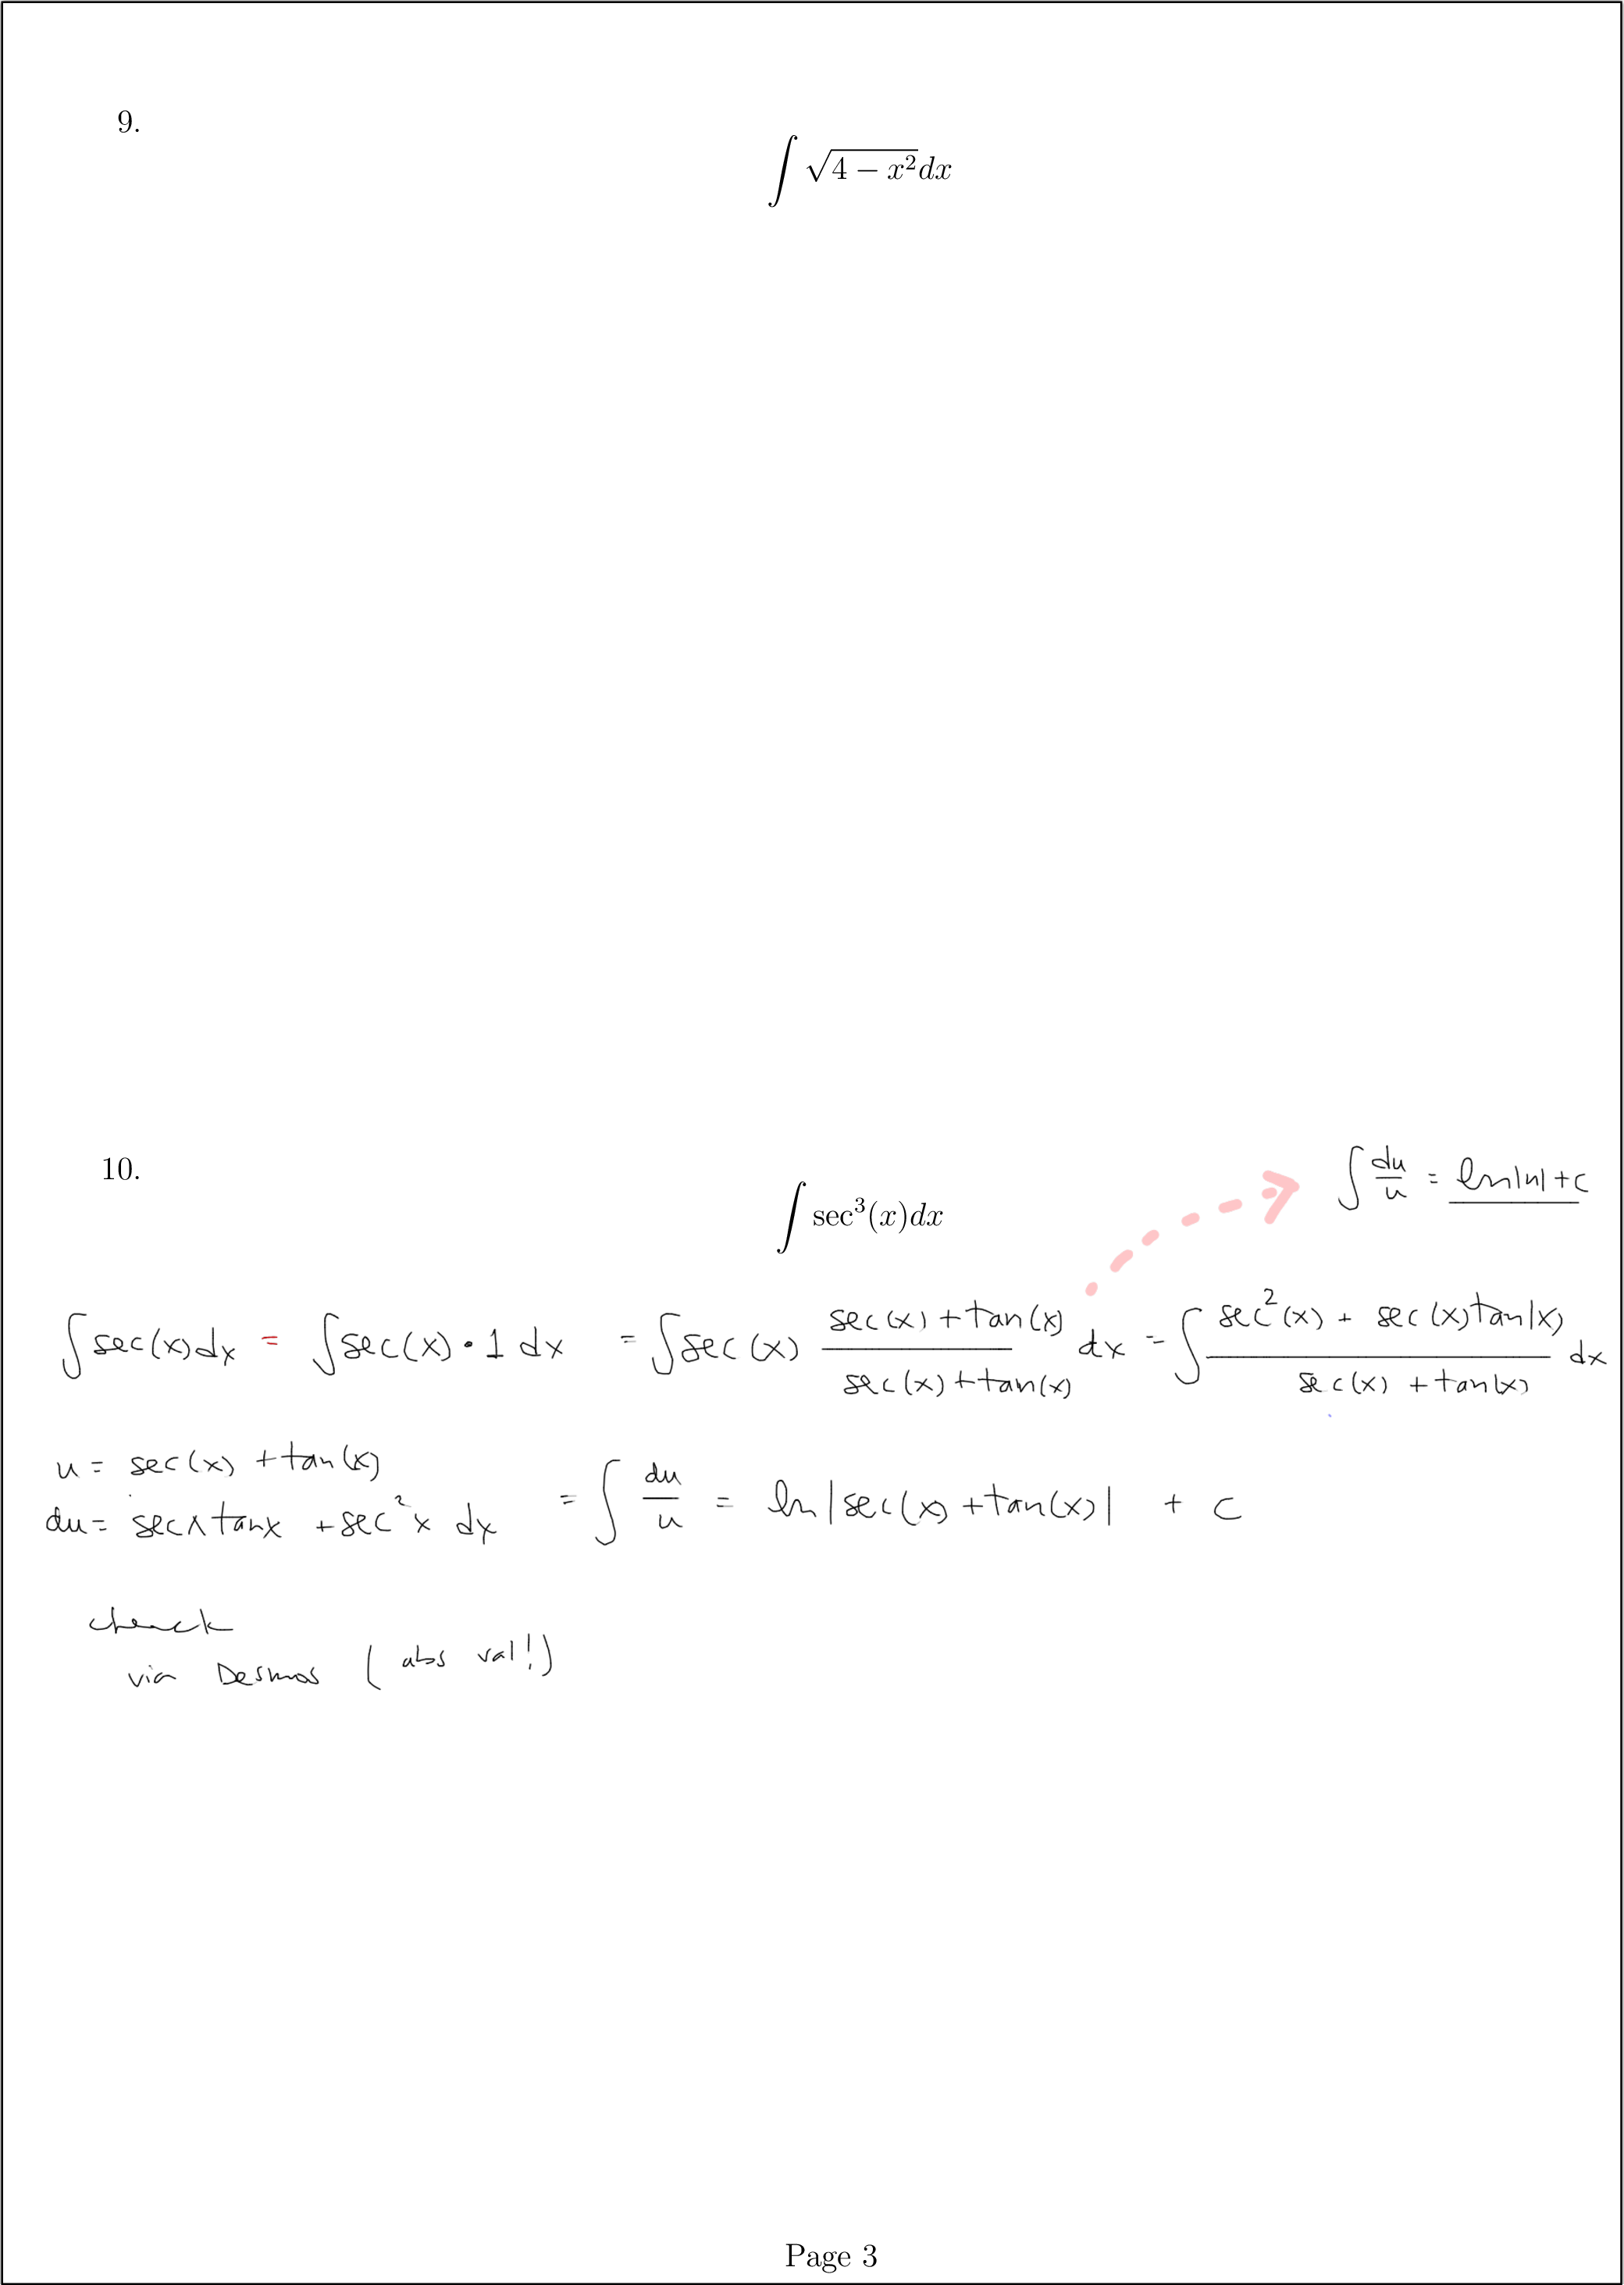 9.
∫ √(4 − x²)dx
10.
∫ sec³(x)dx
∫ du/u = ln|u| + c
∫ sec(x)dx = ∫ sec(x) • 1 dx = ∫ sec(x) (sec(x) + tan(x))/(sec(x) + tan(x)) dx = ∫ (sec²(x) + sec(x)tan(x))/(sec(x) + tan(x)) dx
u = sec(x) + tan(x)
du = secx tanx + sec²x dx = ∫ du/u = ln|sec(x) + tan(x)| + c
check
via Desmos ( abs val!)
Page 3